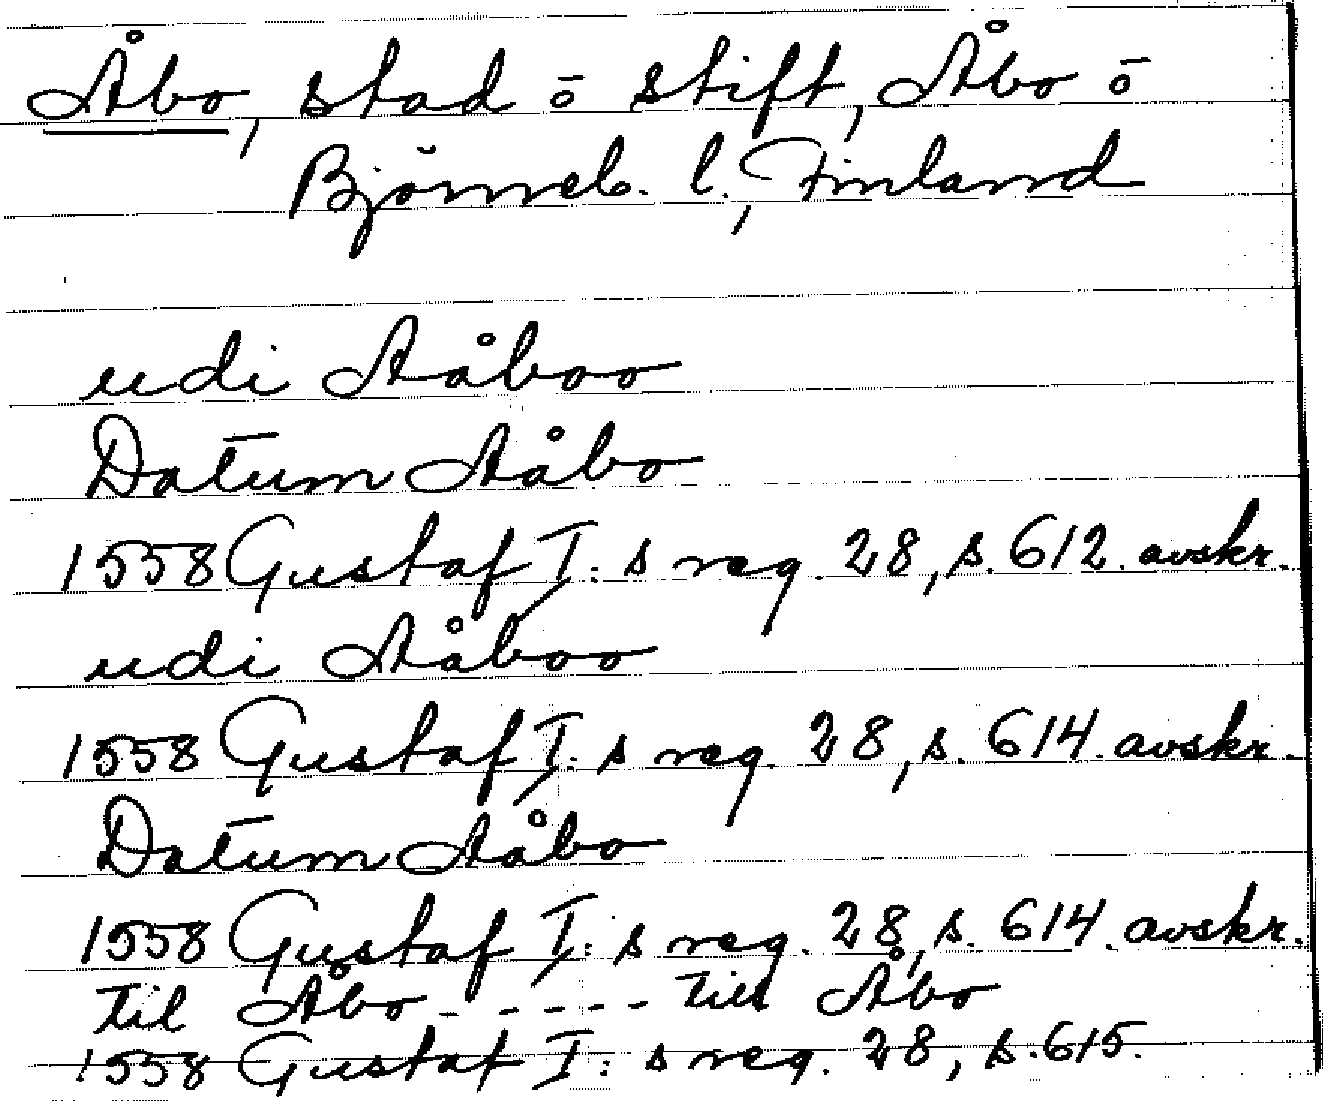 Åbo, stad o stift, Åbo o
Björneb. l., Finland
udi Aåboo
Datum Aåbo
1558 Gustaf I:s reg. 28, s. 612. avskr.
udi Aåboo
1558 Gustaf I:s reg. 28, s. 614. avskr.
Datum Aåbo
1558 Gustaf I:s reg. 28, s. 614. avskr.
til Åbo - - - - - till Åbo
1558 Gustaf I:s reg. 28, s. 615.